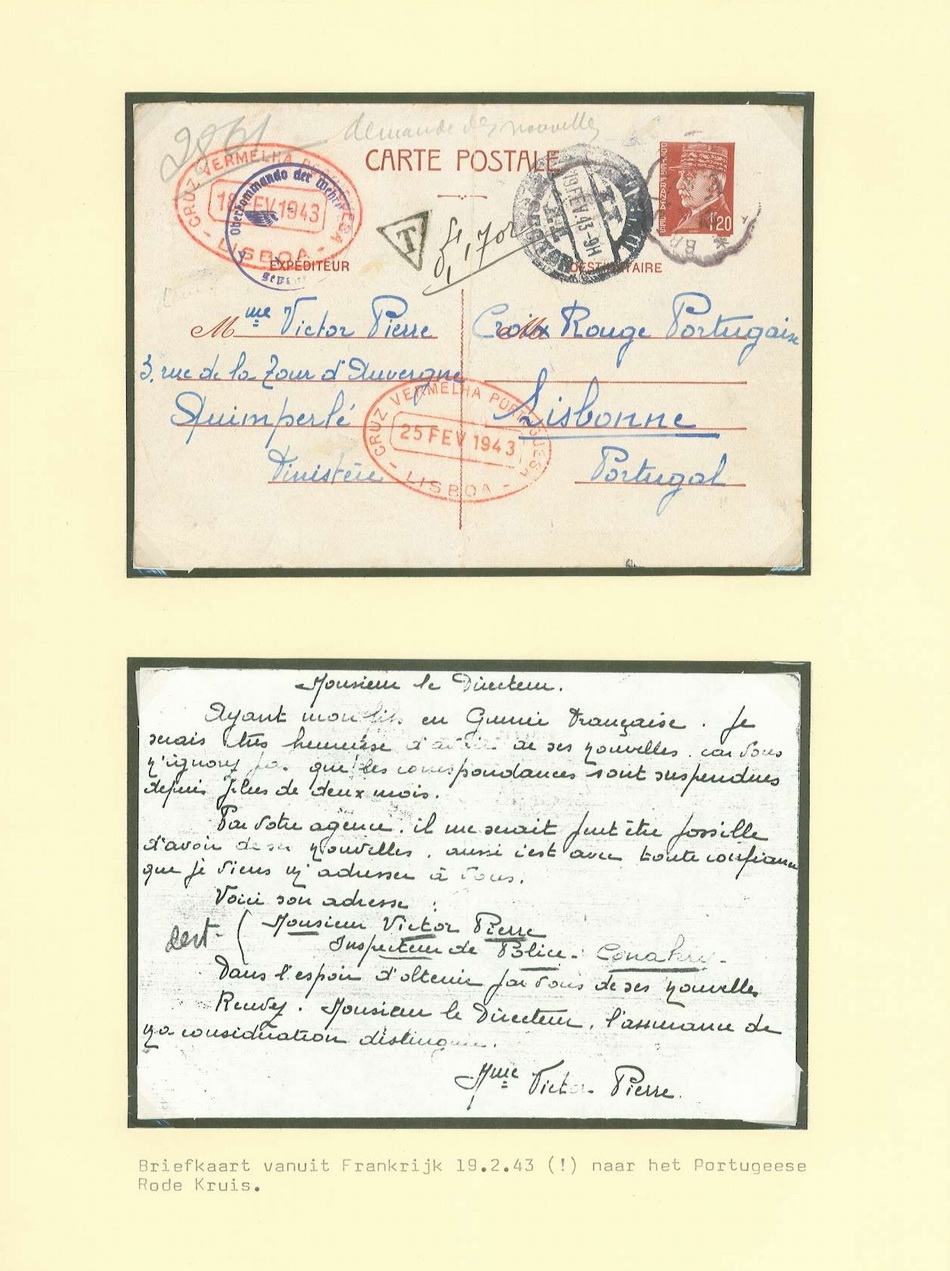 2861
demande des nouvelles
CARTE POSTALE
CRUZ VERMELHA
FEV 1943
LISBOA
Oberkommando der Wehr
T
f, 1,70
19 FEV 43-9H
1F20
EXPÉDITEUR
DESTINATAIRE
Mme Victor Pierre
Croix Rouge Portugaise
3, rue de la Tour d'Auvergne
Quimperlé
Lisbonne
CRUZ VERMELHA PORTUGUESA
25 FEV 1943
LISBOA
Finistère
Portugal
Monsieur le Directeur.
Ayant mon fils en Guinée Française. Je
serais très heureuse d'avoir de ses nouvelles, car vous
n'ignorez pas que les correspondances sont suspendues
depuis plus de deux mois.
Par votre agence, il me serait peut être possible
d'avoir de ses nouvelles, aussi c'est avec toute confiance
que je viens m'adresser à vous.
Voici son adresse :
dest- ( Monsieur Victor Pierre
Inspecteur de Police - Conakry -
Dans l'espoir d'obtenir par vous de ses nouvelles
Recevez, Monsieur le Directeur, l'assurance de
ma considération distinguée.
Mme Victor Pierre.
Briefkaart vanuit Frankrijk 19.2.43 (!) naar het Portugeese
Rode Kruis.